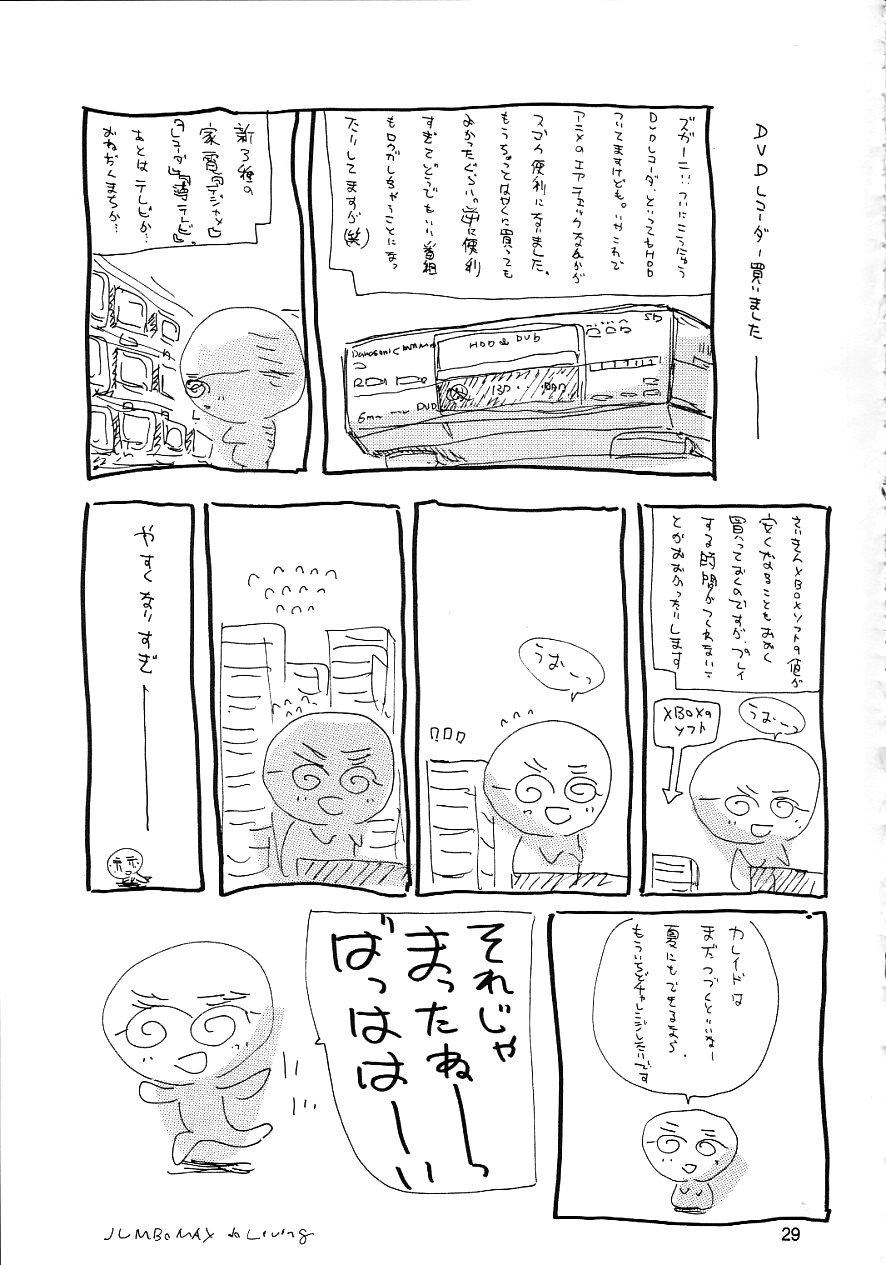 DVDレコーダー買いました
ズガーン…ついにこうにゅう
DVDレコーダーといってもHDD
ついてますけども。いやこれで
アニメのエアチェックなんかが
スゴク便利になりました。
もうちょっとはやくに買っても
よかったぐらい。逆に便利
すぎてどうでもいい番組
もロクガしちゃうことになっ
たりしてますが(笑)
HDD & DVD
SD
DVD
新3種の
家電
『デジカメ』
『レコーダ』『薄テレビ』。
あとはテレビか…
おねだんくまちか…
さいきんXBOXソフトの値が
安くなることもおおく
買っておくのですが、プレイ
する時間がつくれないこ
とがおおかったりします
うおーっ
XBOXの
ソフト
うおーっ
やすくなりすぎ
カレイドは
まだつづくといいなー
夏にもできるなら、
もういちどチャレンジしたいです
それじゃ
まったねーっ
ばっははーい
JUMBOMAX do Living
29